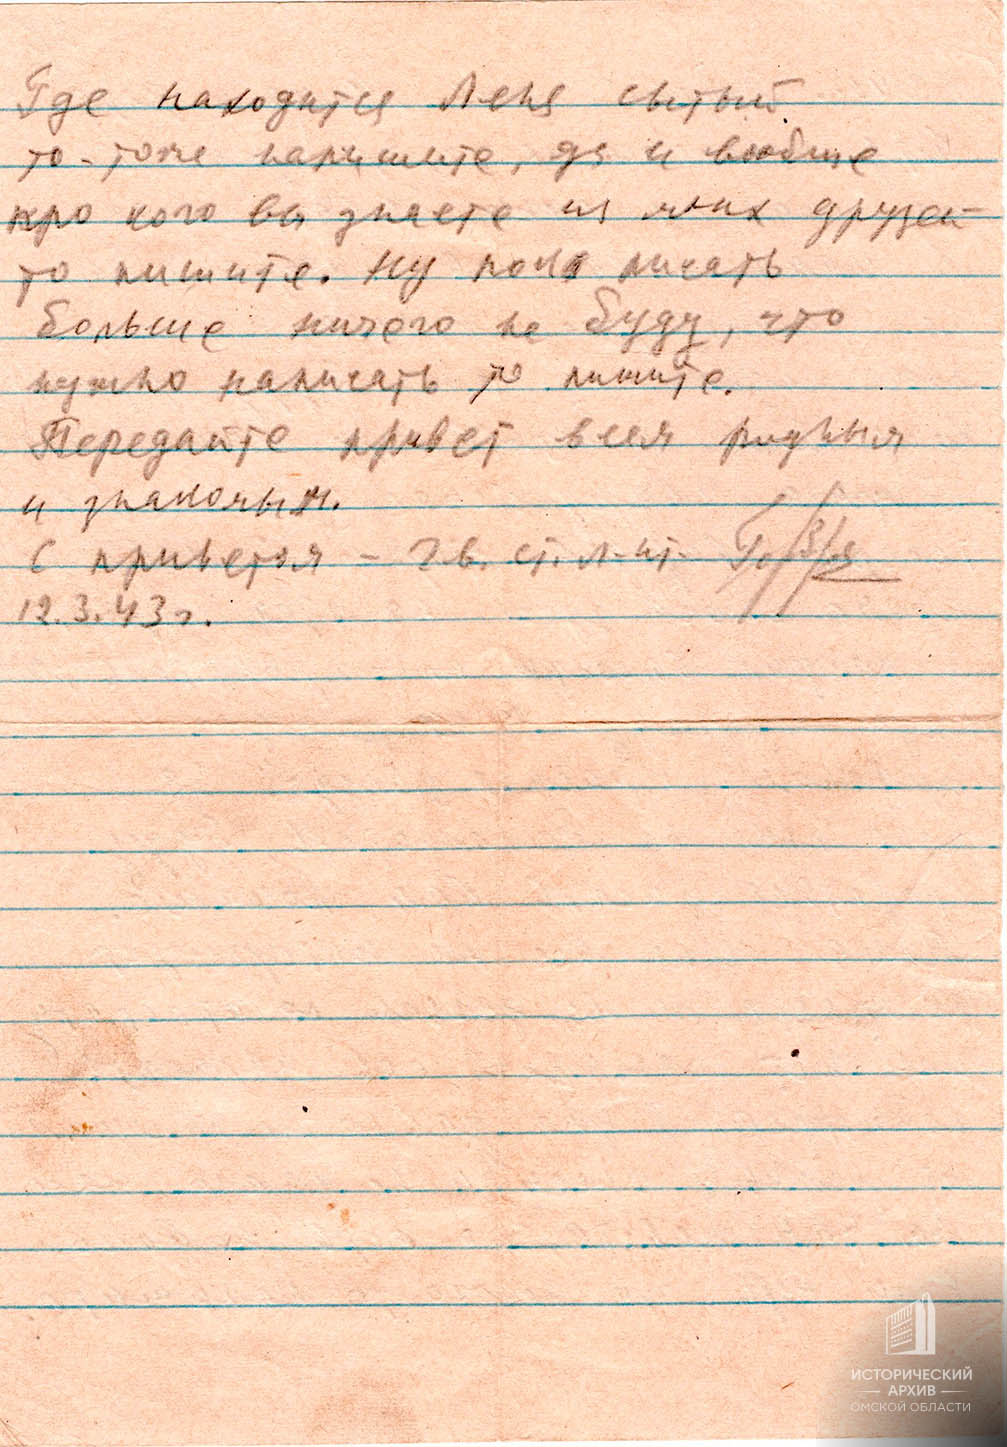 Где находится Леня сытый
то-тоже напишите, да и вообще
про кого вы знаете из моих друзей
то пишите. Ну пока писать
больше ничего не буду, что
нужно написать то пишите.
Передайте привет всем родным
и знакомым.
С приветом – гв. ст. л-нт.
12.3.43 г.
ИСТОРИЧЕСКИЙ
АРХИВ
ОМСКОЙ ОБЛАСТИ